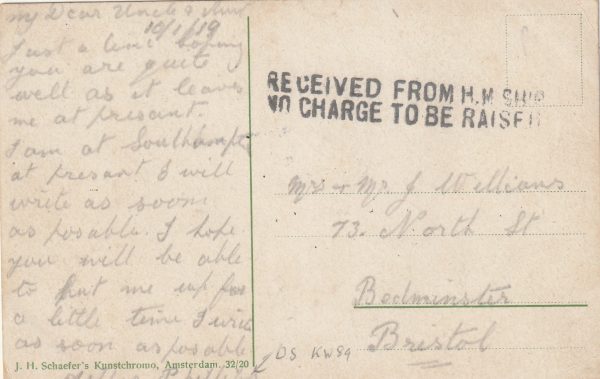 My Dear Uncle & Aunt
10/1/19
Just a line hoping
you are quite
well as it leaves
me at presant.
I am at Southampt
at presant I will
write as soon
as posable. I hope
you will be able
to put me up for
a little time I write
as soon as posable
J. H. Schaefer's Kunstchromo, Amsterdam. 32/20
RECEIVED FROM H.M SHIP
NO CHARGE TO BE RAISED
Mrs & Mr J Williams
73. North St
Bedminster
Bristol
DS KW89